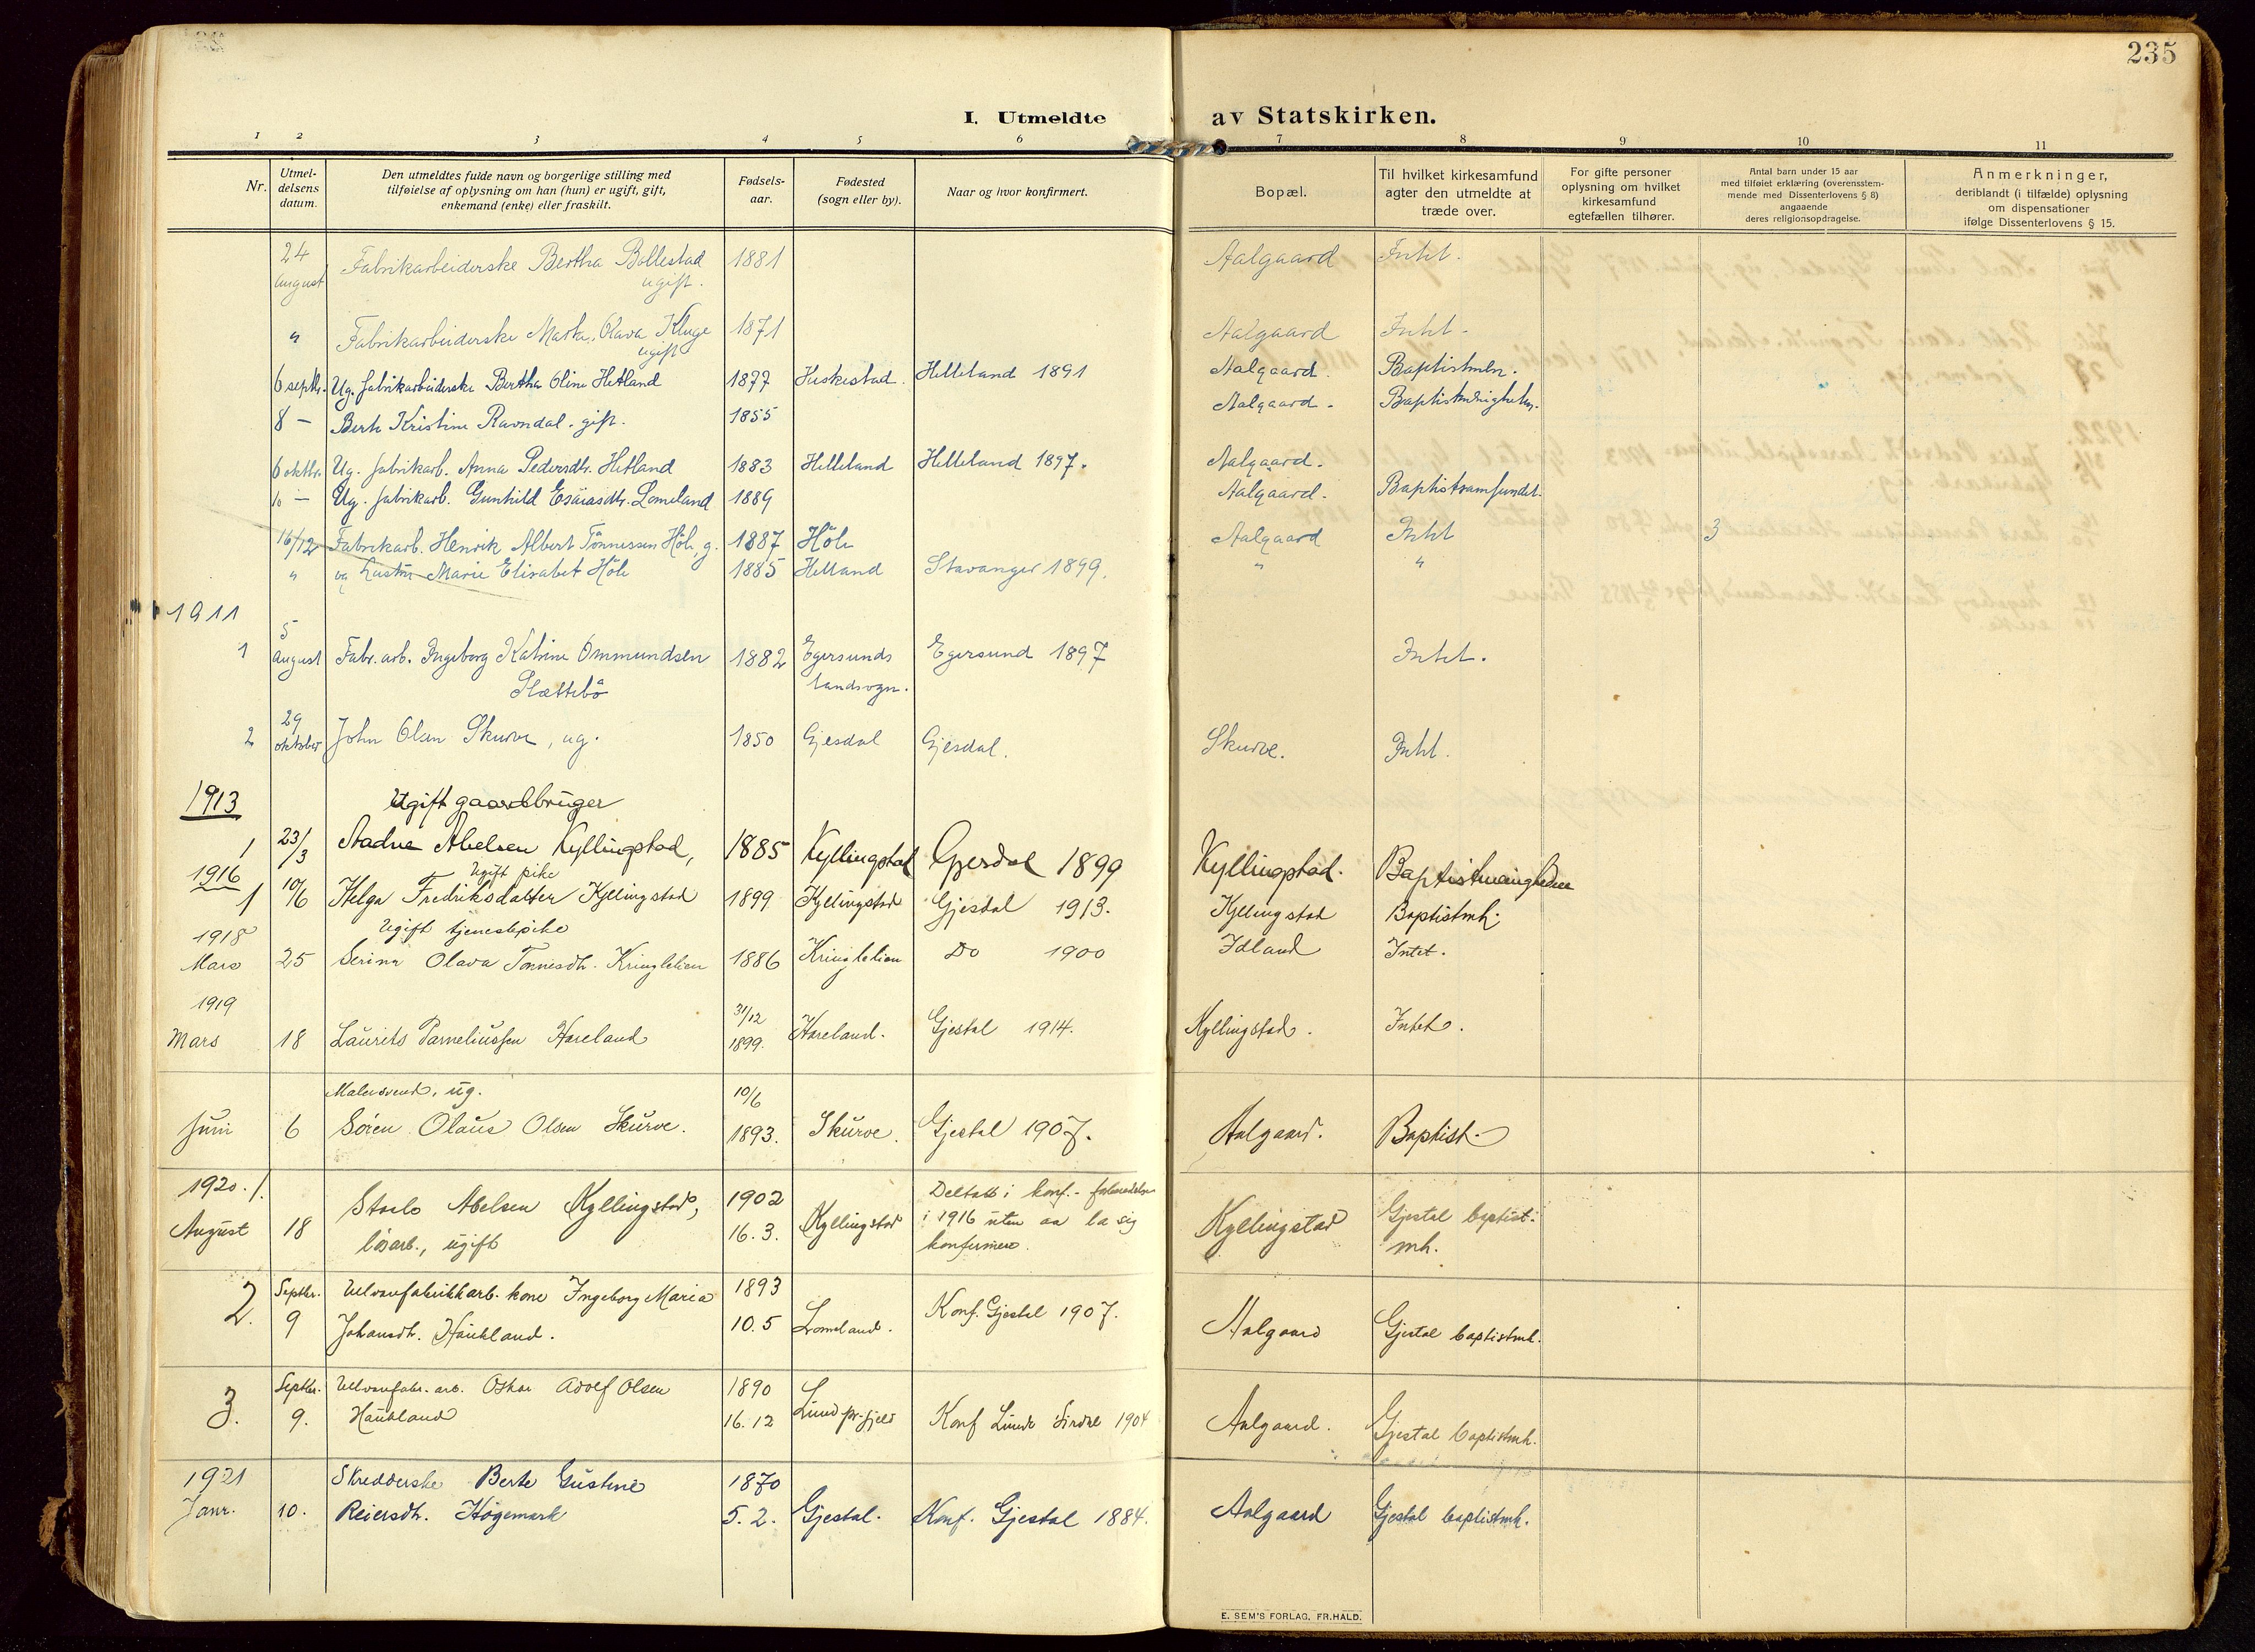 235
I. Utmeldte av Statskirken.
1 2 3 4 5 6 7 8 9 10 11
Nr.
Utmel-
delsens
datum.
Den utmeldtes fulde navn og borgerlige stilling med
tilføielse af oplysning om han (hun) er ugift, gift,
enkemand (enke) eller fraskilt.
Fødsels-
aar.
Fødested
(sogn eller by).
Naar og hvor konfirmert.
Bopæl.
Til hvilket kirkesamfund
agter den utmeldte at
træde over.
For gifte personer
oplysning om hvilket
kirkesamfund
egtefællen tilhører.
Antal barn under 15 aar
med tilføiet erklæring (overensstem-
mende med Dissenterlovens § 8)
angaaende
deres religionsopdragelse.
Anmerkninger,
deriblandt (i tilfælde) oplysning
om dispensationer
ifølge Dissenterlovens § 15.
24 august Fabrikarbeiderske Bertha Bollestad 1881 Aalgaard Intet.
ugift.
" Fabrikarbeiderske Marta Olava Kluge 1871 Aalgaard Intet.
ugift
6 septbr. Ug. fabrikarbeiderske Bertha Oline Hetland 1877 Heskestad. Helleland 1891 Aalgaard. Baptistmen.
8 — Berte Kristine Ravndal. gift. 1855 Aalgaard. Baptistmenigheten.
6 oktbr. Ug. fabrikarb. Anna Pedersdtr. Hetland 1883 Helleland Helleland 1897. Aalgaard.
10 — Ug. fabrikarb. Gunhild Esaiasdtr. Lomeland 1889 Aalgaard. Baptistsamfundet.
16/12 Fabrikarb. Henrik Albert Tönnessen Höle, g. 1887 Höle Aalgaard Intet 3
" og hustru Marie Elisabet Höle 1885 Hetland Stavanger 1899. " "
1911
1 5 august Fabr. arb. Ingeborg Katrine Ommundsen 1882 Egersunds Egersund 1897 Intet.
Slættebö landsogn.
2 29 oktober John Olsen Skurve, ug. 1850 Gjesdal Gjesdal. Skurve. Intet.
1913 Ugift gaardbruger
1 23/3 Aadne Abelsen Kyllingstad, 1885 Kyllingstad Gjesdal 1899 Kyllingstad. Baptistmenigheden
1916 Ugift pike
1 10/6 Helga Fredriksdatter Kyllingstad 1899 Kyllingstad Gjesdal 1913. Kyllingstad Baptistmh.
1918 Ugift tjenestepike
Mars 25 Serina Olava Tønnesdtr. Kringlelien 1886 Kringlelien Do 1900 Idland Intet.
1919
Mars 18 Laurits Parneliussen Hareland 31/12 1899. Hareland. Gjesdal 1914. Kyllingstad. Intet.
Malersvend, ug.
Juni 6 Søren Olaus Olsen Skurve. 10/6 1893. Skurve. Gjesdal 1907. Aalgaard. Baptist.
1920. 1. Abelsen Kyllingstad, 1902 Deltatt i konf.- forberedelsen
August 18 løsarb., ugift 16. 3. Kyllingstad i 1916 uten aa la sig Kyllingstad Gjesdal baptist-
konfirmere. mh.
2. Septbr. 9 Uldvarefabrikkarb. kone Ingeborg Maria 1893
Johansdtr. Haukland. 10. 5 Lomeland. Konf. Gjesdal 1907. Aalgaard Gjesdal baptistmh.
3. Septbr. 9. Uldvarefabr. arb. Oskar Adolf Olsen 1890
Haukland 16. 12 Konf 1904 Aalgaard. Gjesdal baptistmh.
1921 Skredderske Berte Gustine 1870
Janr. 10. Reiersdtr. Høgemark 5. 2. Gjesdal. Konf. Gjesdal 1884. Aalgaard Gjesdal baptistmh.
E. SEM'S FORLAG, FR.HALD.